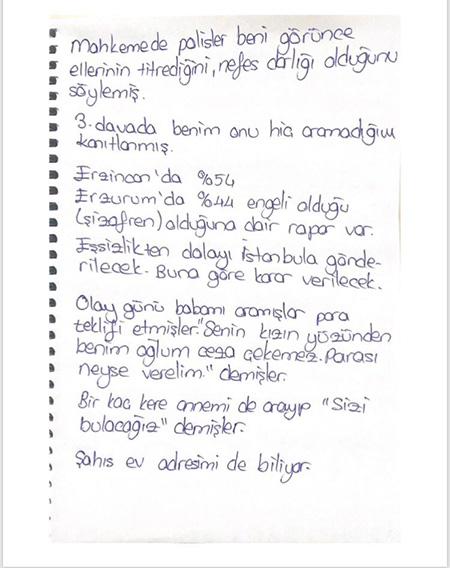 Mahkemede polisler beni görünce
ellerinin titrediğini, nefes darlığı olduğunu
söylemiş.
3. davada benim onu hiç aramadığım
kanıtlanmış.
Erzincan'da %54
Erzurum'da %44 engeli olduğu
(şizofren) olduğuna dair rapor var.
Eşsizlikten dolayı İstanbula gönde-
rilecek. Buna göre karar verilecek.
Olay günü babamı aramışlar para
teklifi etmişler. "Senin kızın yüzünden
benim oğlum ceza çekemez. Parası
neyse verelim." demişler.
Bir kaç kere annemi de arayıp "Sizi
bulacağız" demişler.
Şahıs ev adresimi de biliyor.